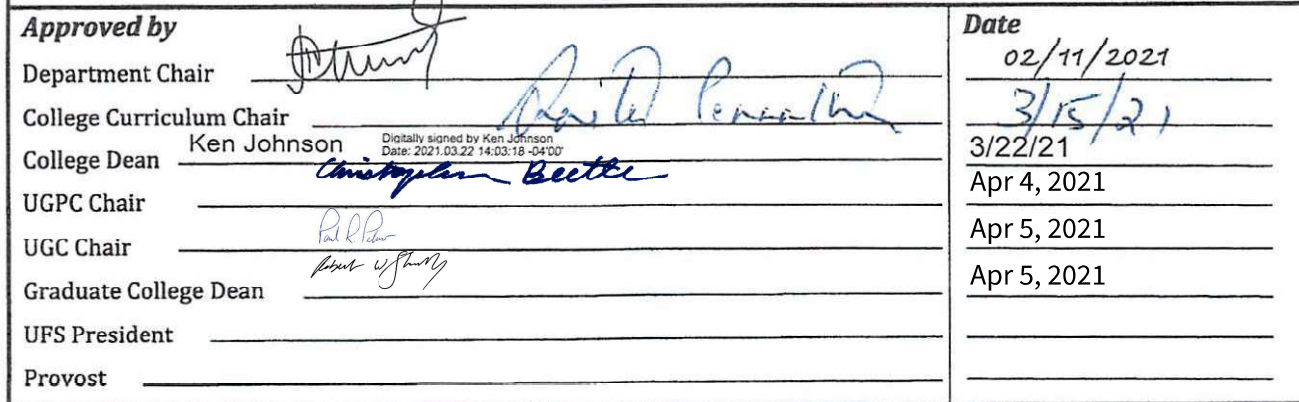 Approved by Date
Department Chair 02/11/2021
College Curriculum Chair 3/15/21
College Dean Ken Johnson Digitally signed by Ken Johnson 3/22/21
Date: 2021.03.22 14:03:18 -04'00'
Christopher Beetle
UGPC Chair Apr 4, 2021
UGC Chair Apr 5, 2021
Graduate College Dean Robert W Apr 5, 2021
UFS President
Provost